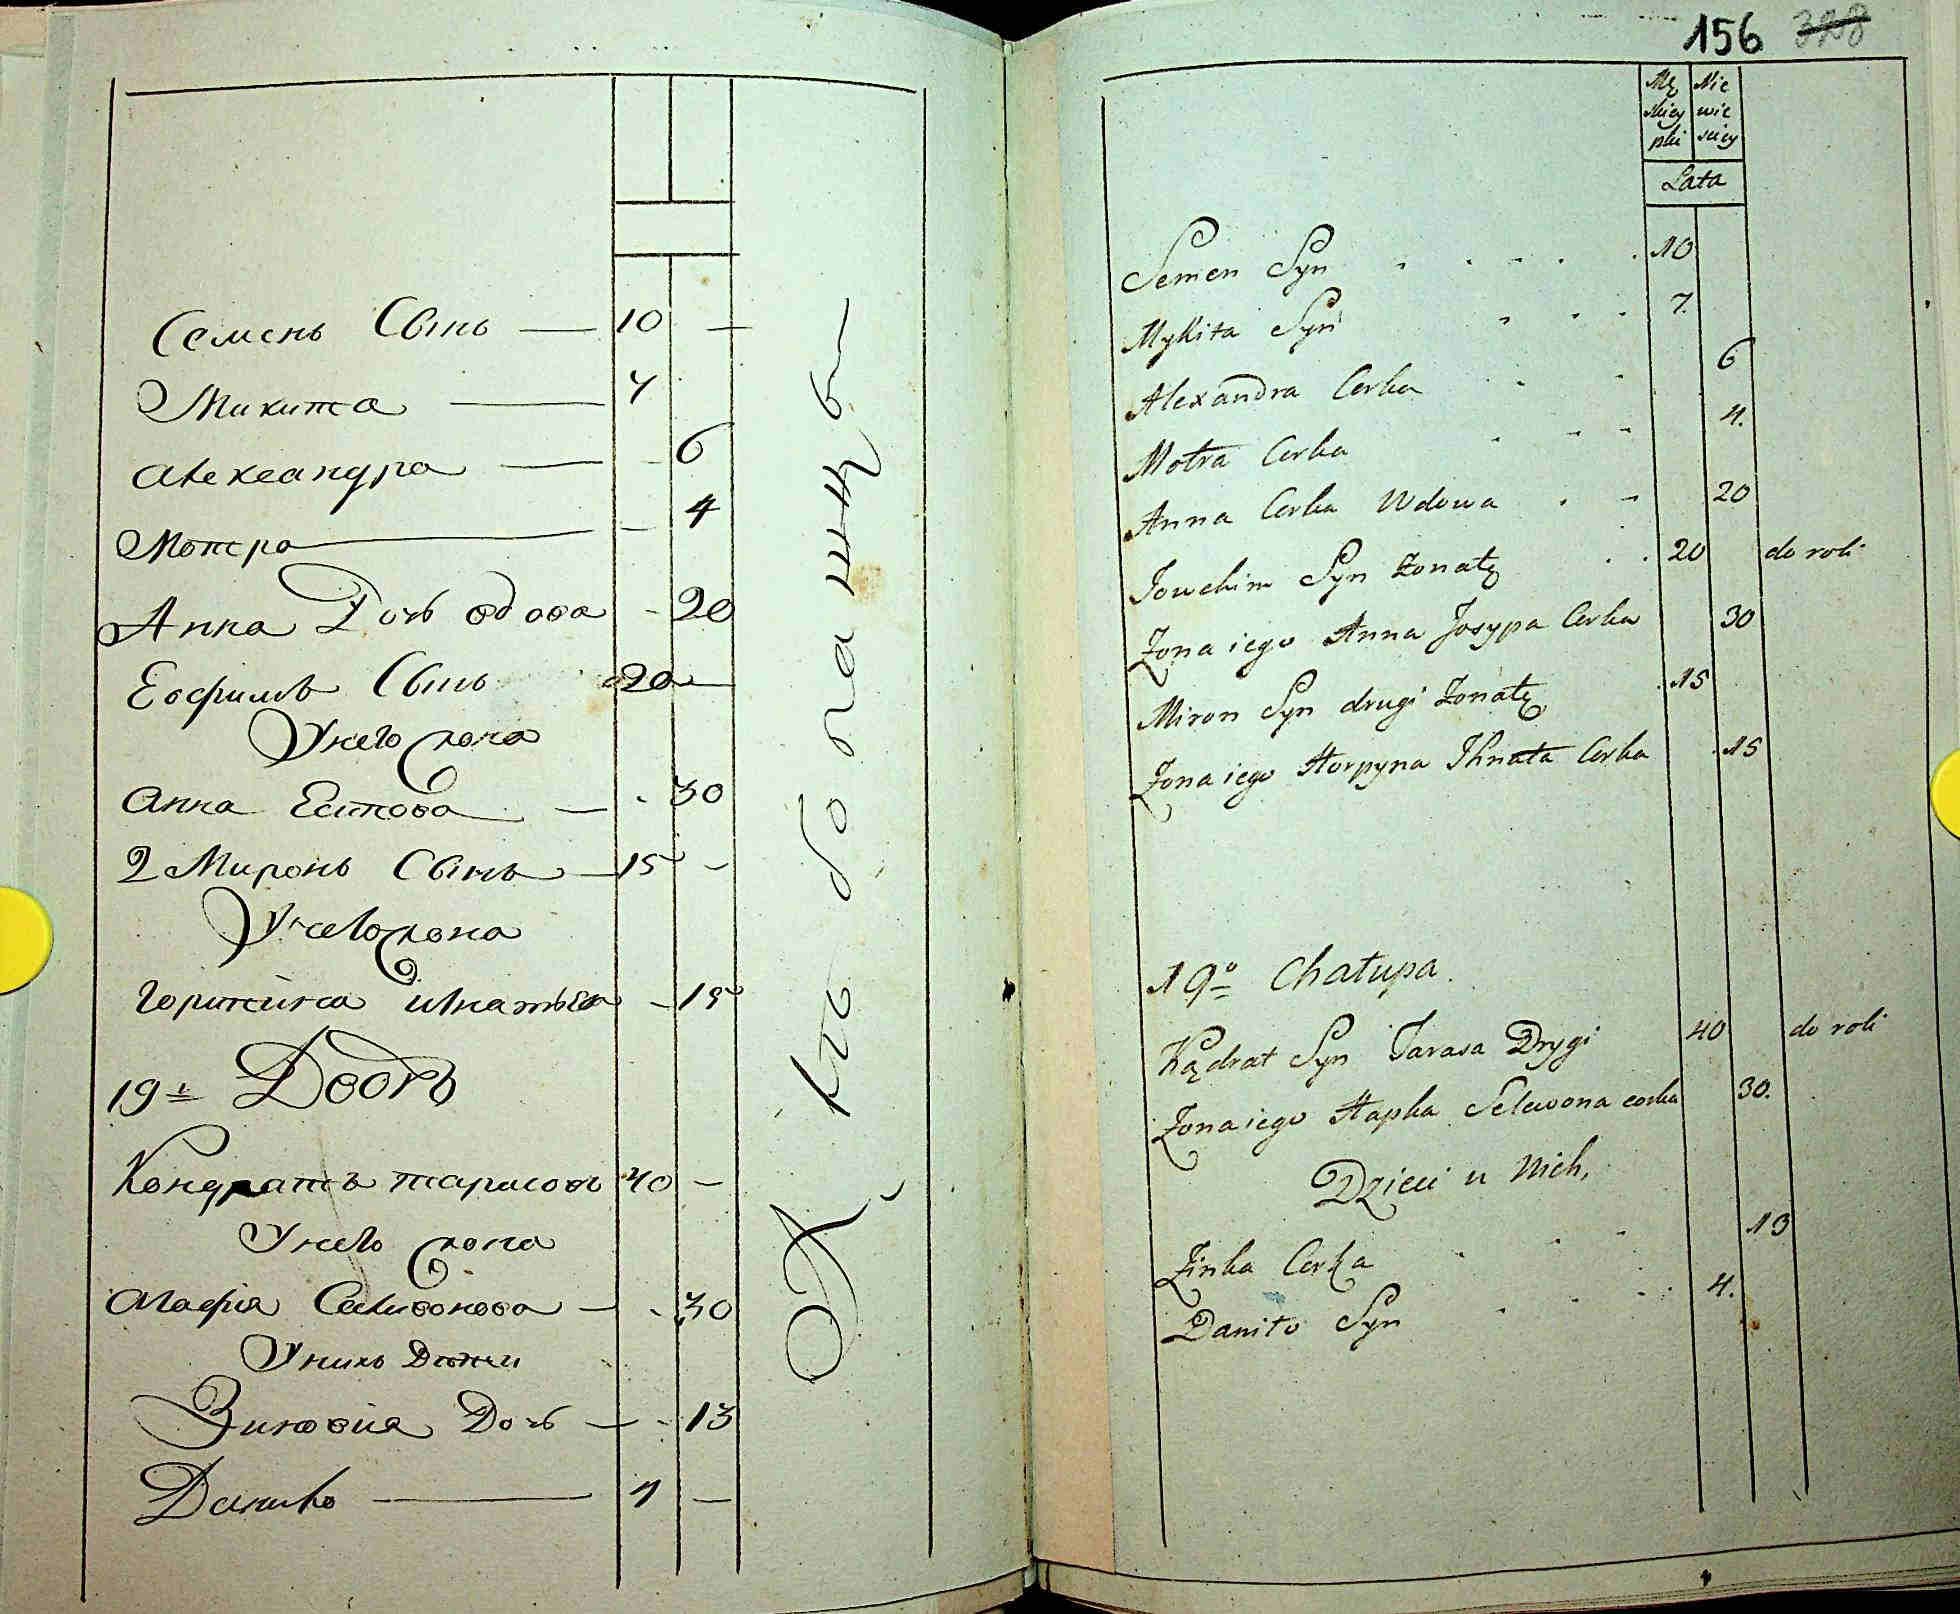 Семенъ Сынъ — 10 —
Микита — 7
Александра — - 6
Мотра — - 4
Анна Дочь вдова - 20
Еофимъ Сынъ 20 —
У него жона
Анна Есипова — - 30
2 Миронъ Сынъ — 15 -
У него жона
Горпина Игнатьва - 15
19й Дворъ
Кондратъ тарасовъ 40 -
У него жона
Агафія Саливонова — - 30
У нихъ Дѣти
Зиновия Дочь — - 13
Данило — 4 —
156 328
Mę Nie
skiey wie
płci sciey
Lata
Semen Syn 10
Mykita Syn 7.
Alexandra Corka 6
Motra Corka 4.
Anna Corka Wdowa 20
Jouchim Syn żonaty 20 do roli
Żona iego Anna Josypa Corka 30
Miron Syn drugi żonaty 15
Żona iego Horpyna Ihnata Corka 15
19º Chałupa.
Kądrat Syn Tarasa Drygi 40 do roli
Żona iego Hapka Selewona corka 30.
Dzieci u Nich,
Zinka Corka 13
Daniło Syn 4.